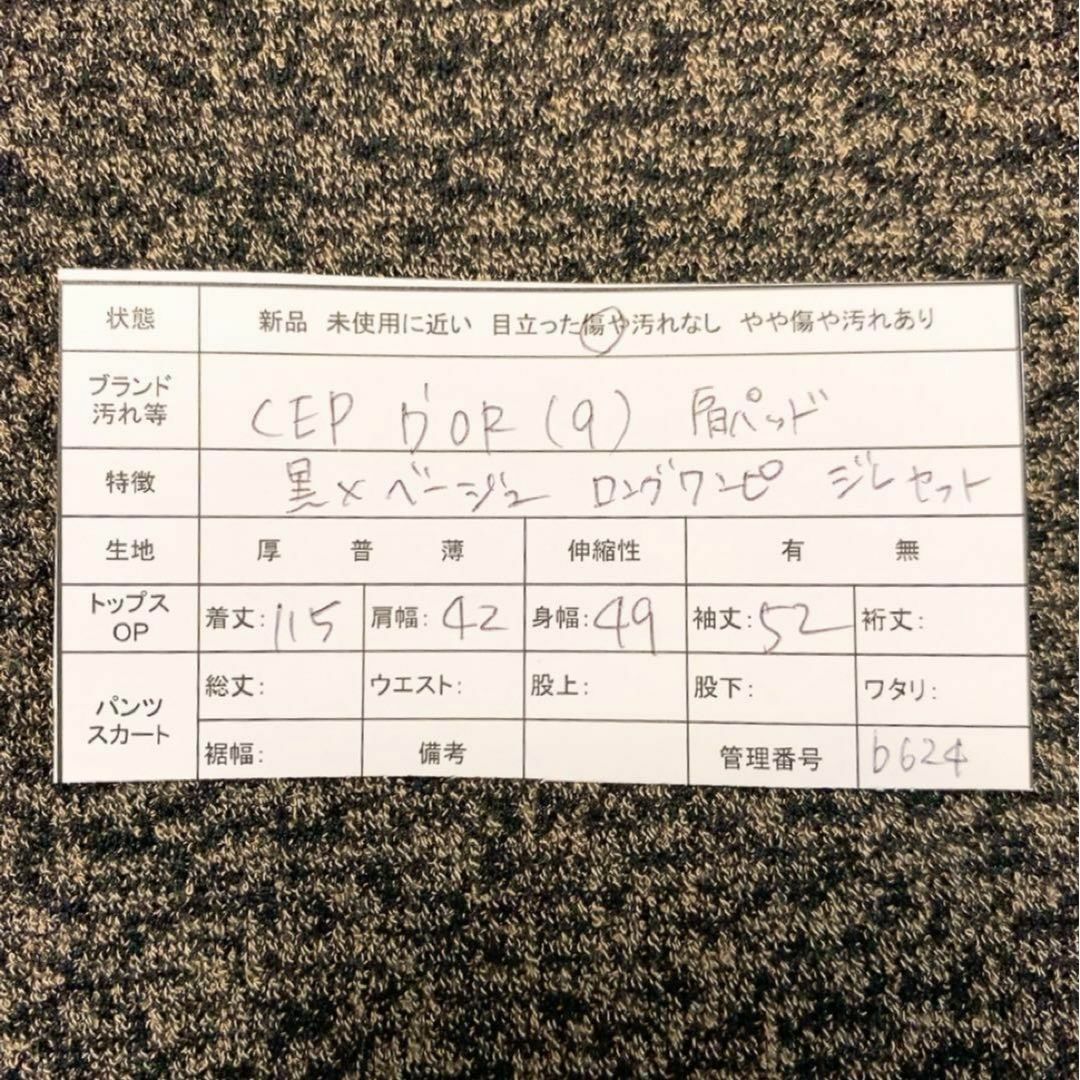 状態 新品 未使用に近い 目立った傷や汚れなし やや傷や汚れあり
ブランド 汚れ等 CEP D'OR (9) 肩パッド
特徴 黒×ベージュ ロングワンピ ジレセット
生地 厚 普 薄 伸縮性 有 無
トップス OP 着丈:115 肩幅:42 身幅:49 袖丈:52 裄丈:
パンツ スカート 総丈: ウエスト: 股上: 股下: ワタリ:
裾幅: 備考 管理番号 b624